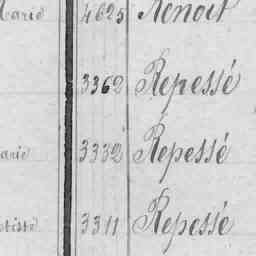 Marie 4625 Renoit
3362 Repessé
Marie 3332 Repessé
3311 Repessé